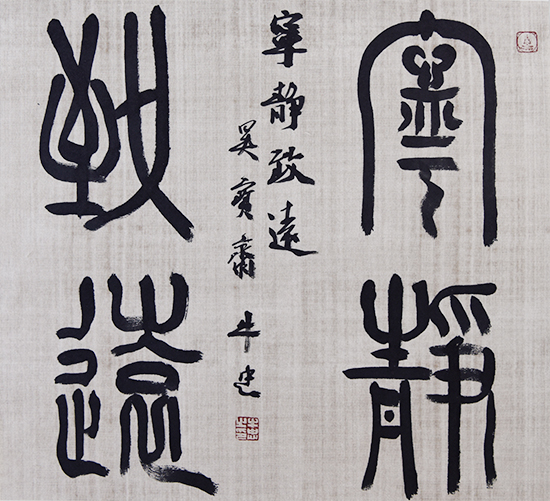 寧靜
寧靜致遠
昊寶齋 牛忠
致遠